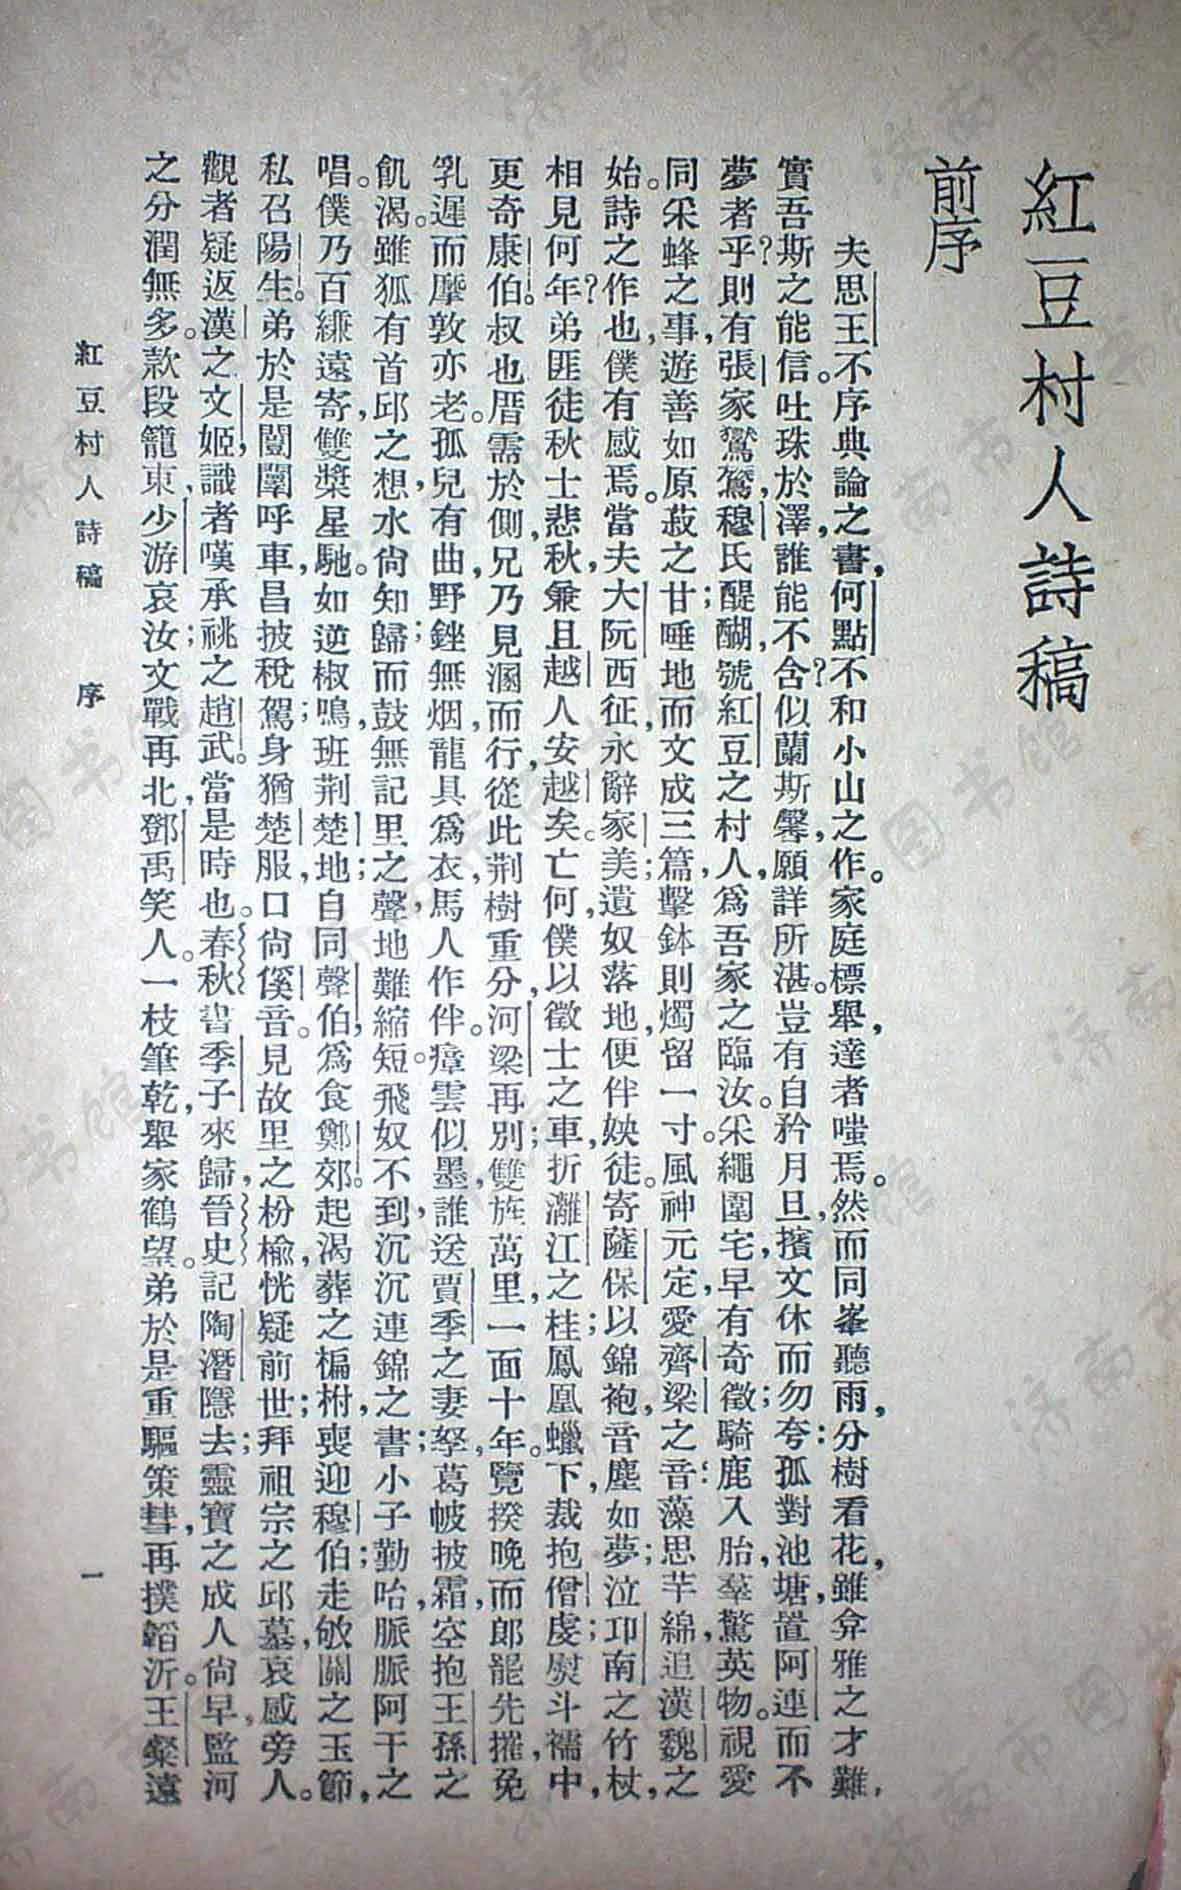 紅豆村人詩稿
前序
夫思王不序典論之書，何點不和小山之作。家庭標舉，達者嗤焉。然而同峯聽雨，分樹看花，雖弇雅之才難，
實吾斯之能信。吐珠於澤，誰能不含？似蘭斯馨，願詳所湛。豈有自矜月旦，擯文休而勿夸；孤對池塘，置阿連而不
夢者乎？則有張家鸑鷟，穆氏醍醐，號紅豆之村人，爲吾家之臨汝。采繩圍宅，早有奇徵；騎鹿入胎，羣驚英物。視愛
同采蜂之事，遊善如原菽之甘；唾地而文成三篇，擊鉢則燭留一寸。風神元定，愛齊梁之音；藻思芊綿，追漢魏之
始。詩之作也，僕有感焉。當夫大阮西征，永辭家美；遺奴落地，便伴姎徒。寄薩保以錦袍，音塵如夢；泣邛南之竹杖，
相見何年？弟匪徒秋士悲秋，兼且越人安越矣。亡何，僕以徵士之車，折灕江之桂；鳳凰蠟下，裁抱僧虔；熨斗襦中，
更奇康伯。叔也厝需於側，兄乃見溷而行，從此荆樹重分，河梁再別；雙旌萬里，一面十年。覽揆晚而郎罷先摧，免
乳遲而摩敦亦老。孤兒有曲，野銼無烟，龍具爲衣，馬人作伴。瘴雲似墨，誰送賈季之妻孥；葛帔披霜，空抱王孫之
飢渴。雖狐有首邱之想，水尙知歸；而鼓無記里之聲，地難縮短。飛奴不到，沉沉連錦之書；小子勤咍，脈脈阿干之
唱。僕乃百縑遠寄，雙槳星馳。如逆椒鳴，班荆楚地；自同聲伯，爲食鄭郊。起渴葬之楄柎，喪迎穆伯；走敂關之玉節，
私召陽生。弟於是闓闈呼車，昌披稅駕；身猶楚服，口尙傒音。見故里之枌楡，恍疑前世；拜祖宗之邱墓，哀感旁人。
觀者疑返漢之文姬，識者嘆承祧之趙武。當是時也。春秋書季子來歸，晉史記陶潛隱去；靈寶之成人尙早，監河
之分潤無多。款段籠東，少游哀汝；文戰再北，鄧禹笑人。一枝筆乾，舉家鶴望。弟於是重驅策彗，再撲韜沂。王粲遠
紅豆村人詩稿　序　一